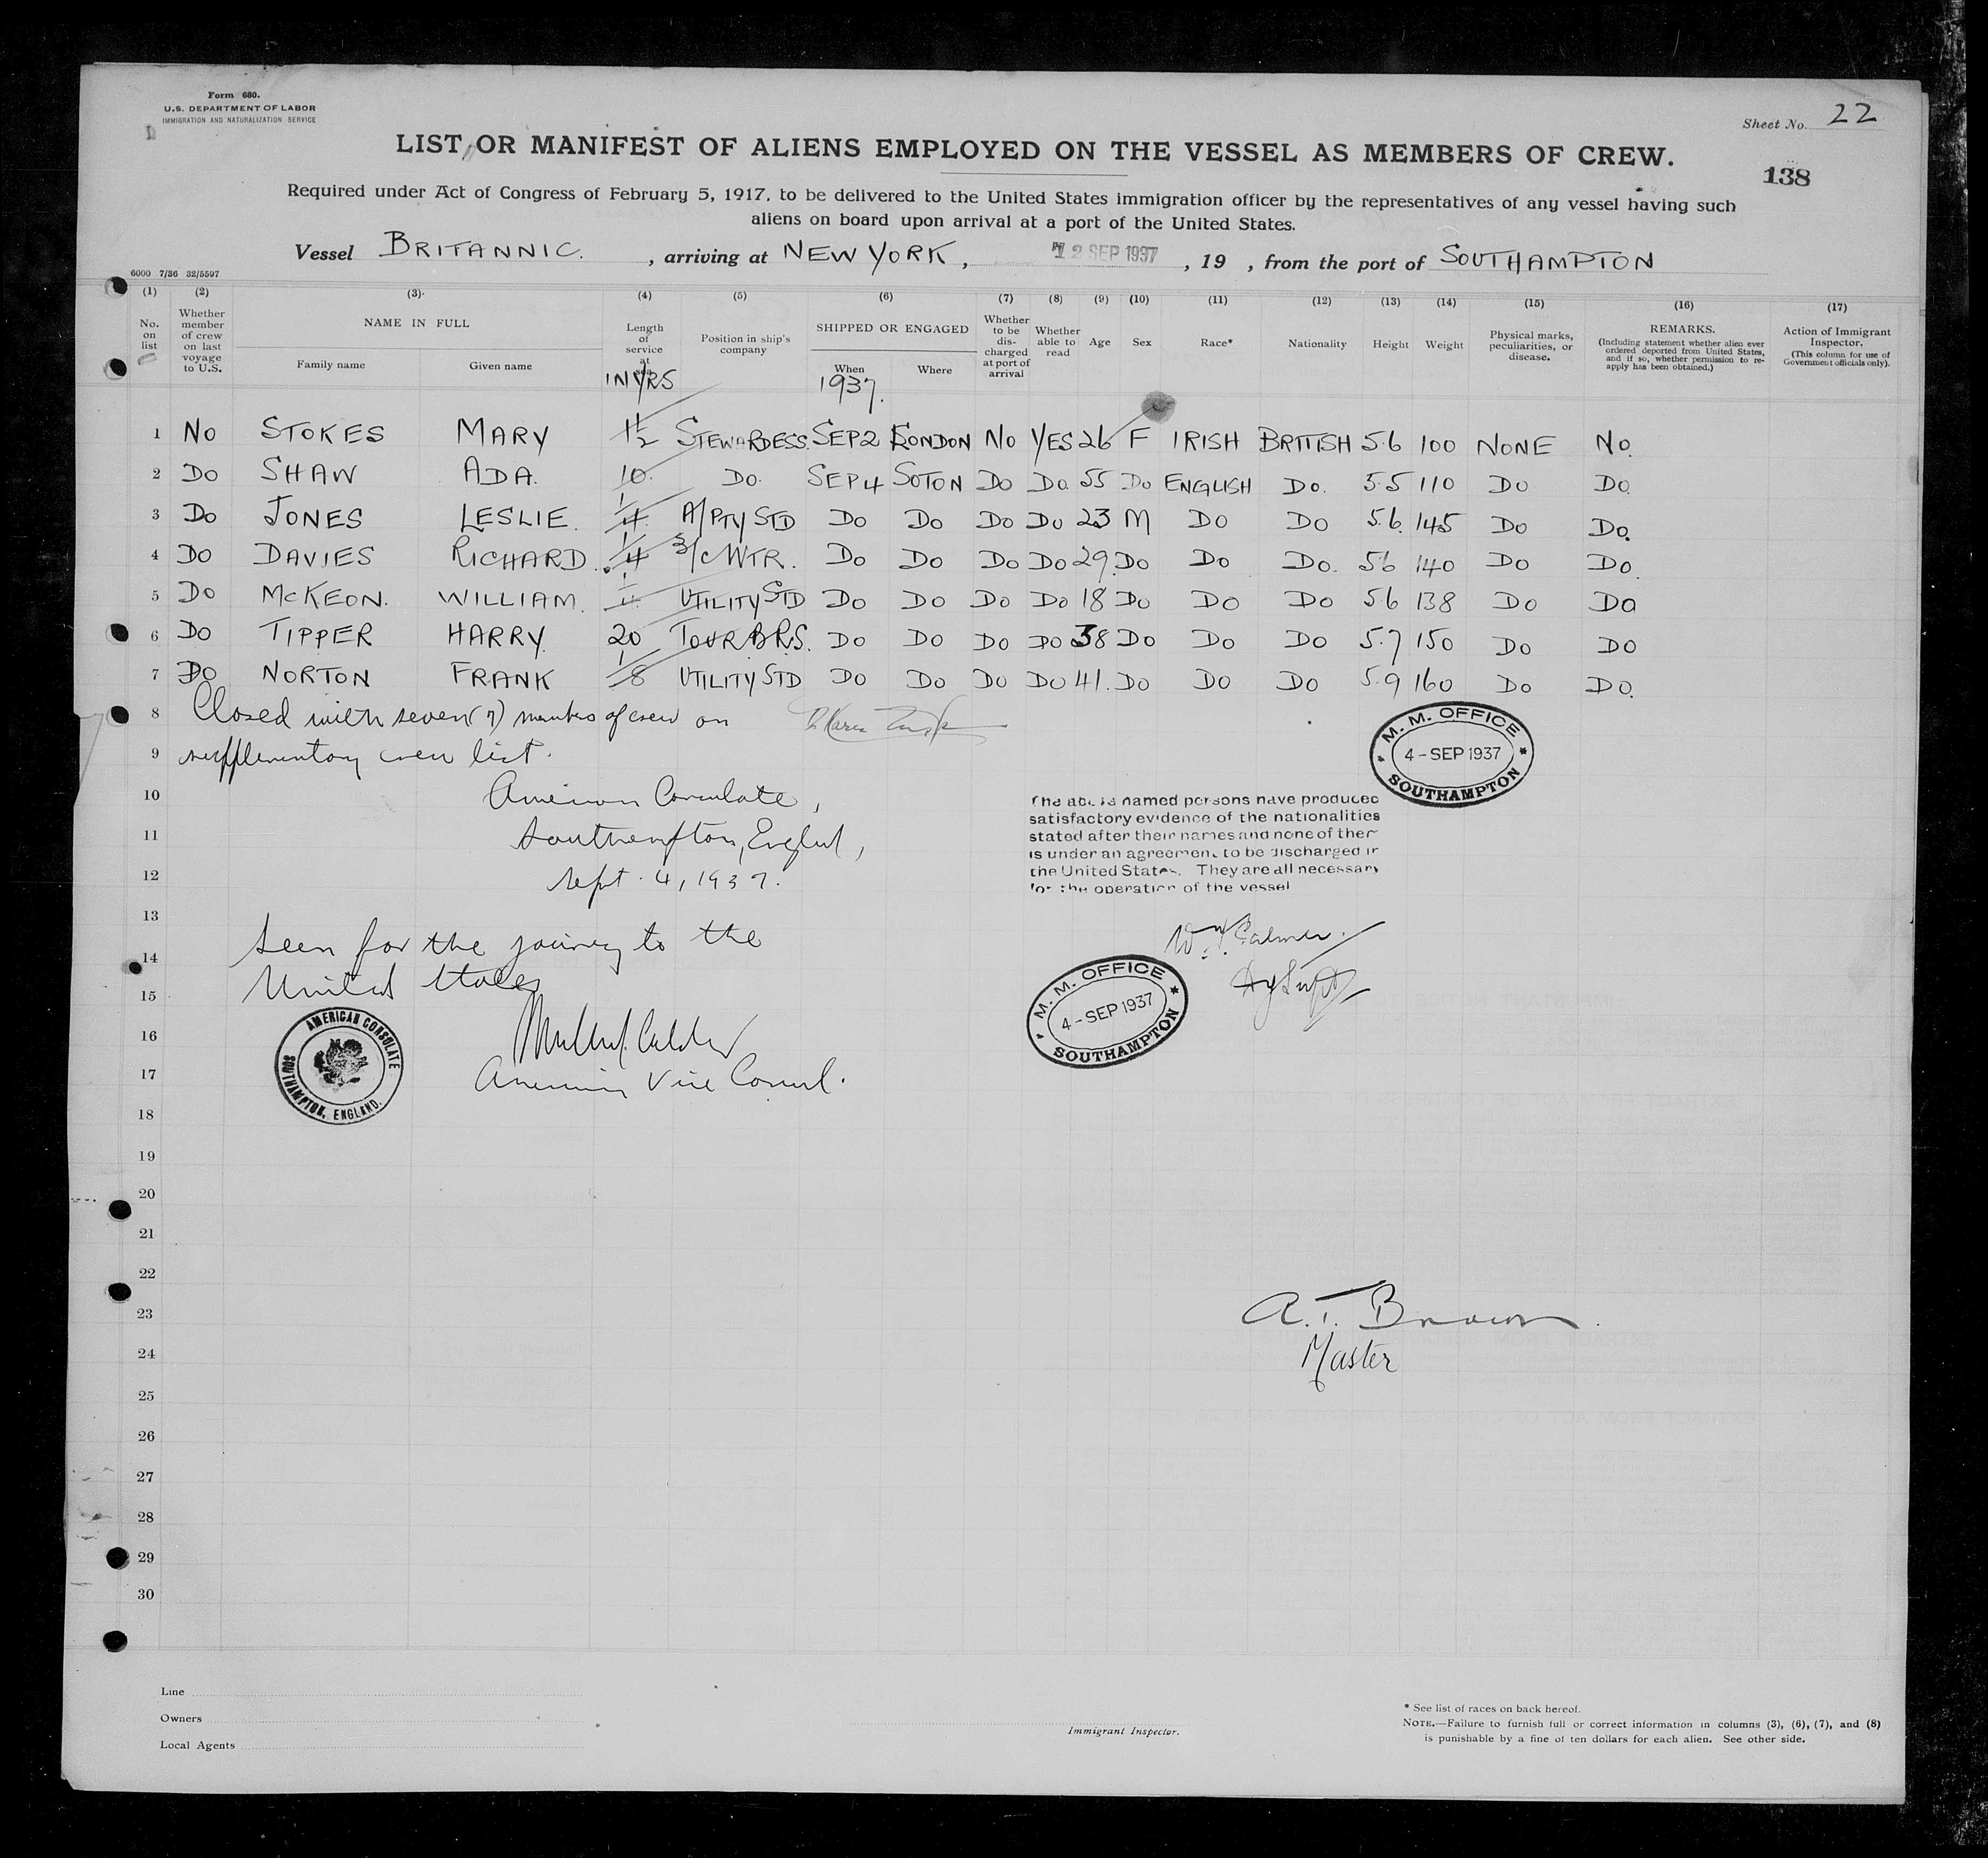 Form 680.
U.S. DEPARTMENT OF LABOR
IMMIGRATION AND NATURALIZATION SERVICE
Sheet No. 22
LIST OR MANIFEST OF ALIENS EMPLOYED ON THE VESSEL AS MEMBERS OF CREW.
138
Required under Act of Congress of February 5, 1917, to be delivered to the United States immigration officer by the representatives of any vessel having such
aliens on board upon arrival at a port of the United States.
Vessel BRITANNIC. , arriving at NEW YORK, 12 SEP 1937 , 19 , from the port of SOUTHAMPTON
6000 7/36 32/5597
(1) (2) (3) (4) (5) (6) (7) (8) (9) (10) (11) (12) (13) (14) (15) (16) (17)
No. on list
Whether member of crew on last voyage to U.S.
NAME IN FULL
Family name Given name
Length of service at sea
IN YRS
Position in ship's company
SHIPPED OR ENGAGED
When Where
1937.
Whether to be discharged at port of arrival
Whether able to read
Age Sex Race* Nationality Height Weight
Physical marks, peculiarities, or disease.
REMARKS.
(Including statement whether alien ever ordered deported from United States, and if so, whether permission to re-apply has been obtained.)
Action of Immigrant Inspector.
(This column for use of Government officials only).
1 NO STOKES MARY 1½ STEWARDESS SEP 2 LONDON NO YES 26 F IRISH BRITISH 5.6 100 NONE NO.
2 DO SHAW ADA. 10. DO. SEP 4 SOTON DO DO 55 DO ENGLISH DO. 5.5 110 DO DO.
3 DO JONES LESLIE. 1/4 A/PTY STD DO DO DO DO 23 M DO DO 5.6. 145 DO DO.
4 DO DAVIES RICHARD. 1/4 3/C WTR. DO DO DO DO 29. DO DO DO. 5.6 140 DO DO.
5 DO MCKEON. WILLIAM. 1/4 UTILITY STD DO DO DO DO 18 DO DO DO 5.6 138 DO DO
6 DO TIPPER HARRY. 20 TOUR B.R.S. DO DO DO DO 38 DO DO DO 5.7 150 DO DO
7 DO NORTON FRANK 1/8 UTILITY STD DO DO DO DO 41. DO DO DO 5.9 160 DO DO.
8 Closed with seven (7) members of crew on
9 supplementary crew list.
M. M. OFFICE
4 - SEP 1937
SOUTHAMPTON
10 American Consulate,
11 Southampton, England,
12 Sept. 4, 1937.
The above named persons have produced
satisfactory evidence of the nationalities
stated after their names and none of them
is under an agreement to be discharged in
the United States. They are all necessary
for the operation of the vessel
13
14 Seen for the journey to the
15 United States
M. M. OFFICE
4 - SEP 1937
SOUTHAMPTON
AMERICAN CONSULATE
SOUTHAMPTON, ENGLAND.
16
17 American Vice Consul.
18
19
20
21
22
23 A. T. Brown.
24 Master
25
26
27
28
29
30
Line
Owners
Local Agents
Immigrant Inspector.
* See list of races on back hereof.
NOTE.—Failure to furnish full or correct information in columns (3), (6), (7), and (8)
is punishable by a fine of ten dollars for each alien. See other side.